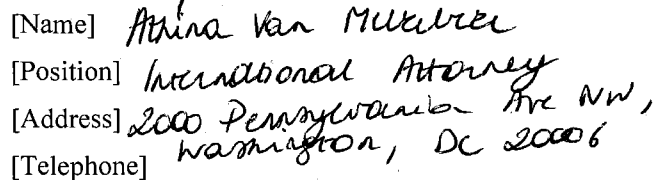 [Name] Athina Van
[Position] International Attorney
[Address] 2000 Pennsylvania Ave NW,
Washington, DC 20006
[Telephone]